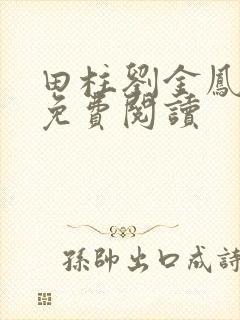 田柱劉金鳳
免費閱讀
孫帥出口成詩